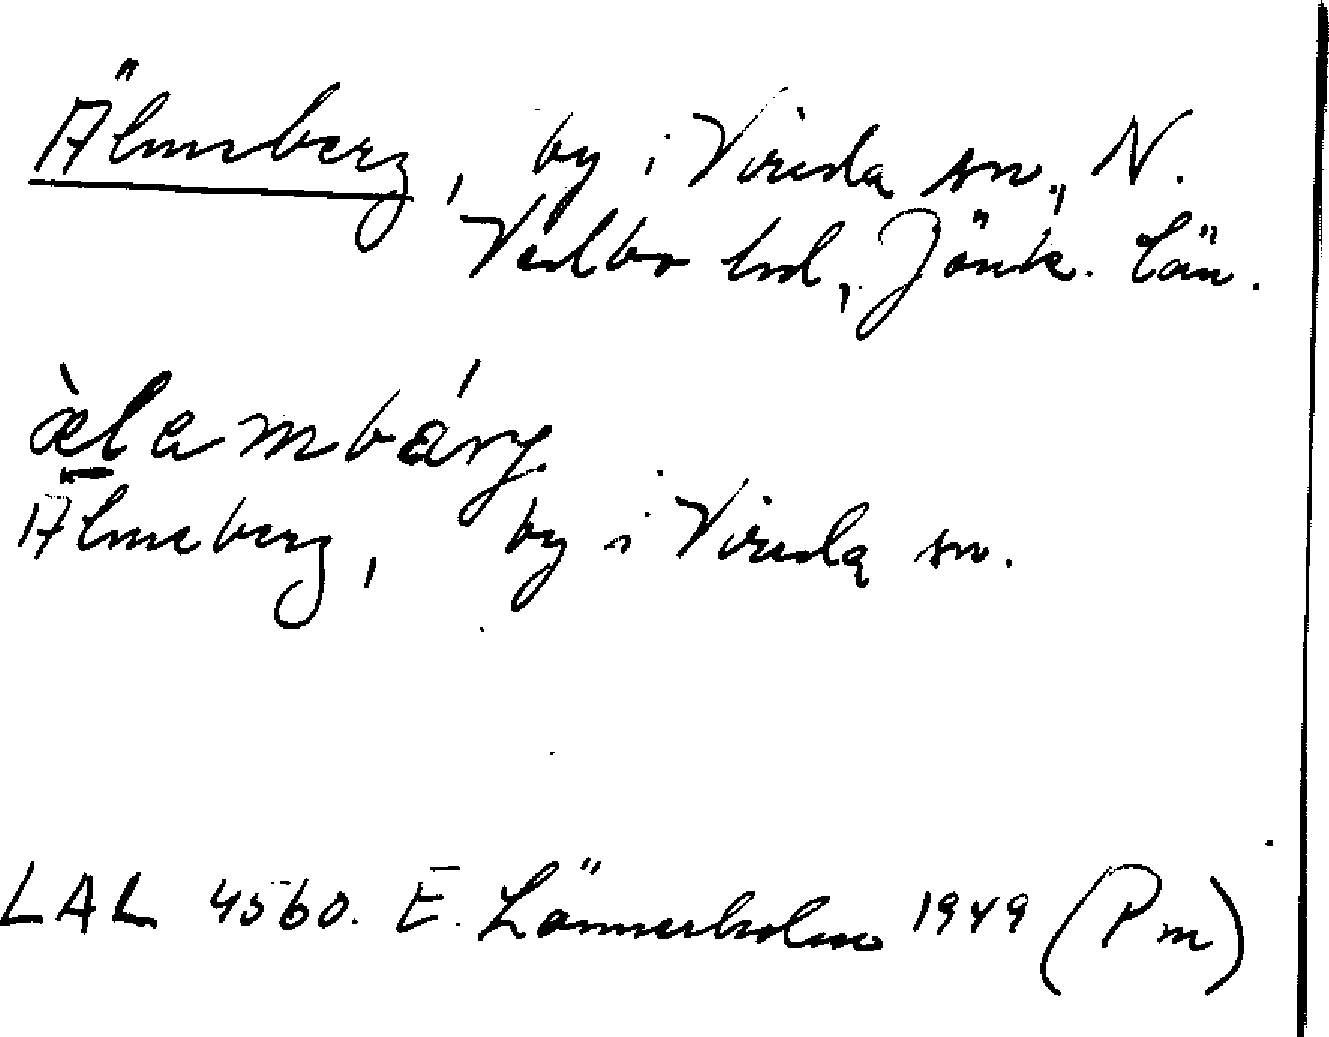 Älmeberg, by i Vireda sn., N.
Vedbo hd, Jönk. län.
æ̀lambárg
Älmeberg, by i Vireda sn.
LAL 4560. E. Lönnerholm 1949 (Pm)